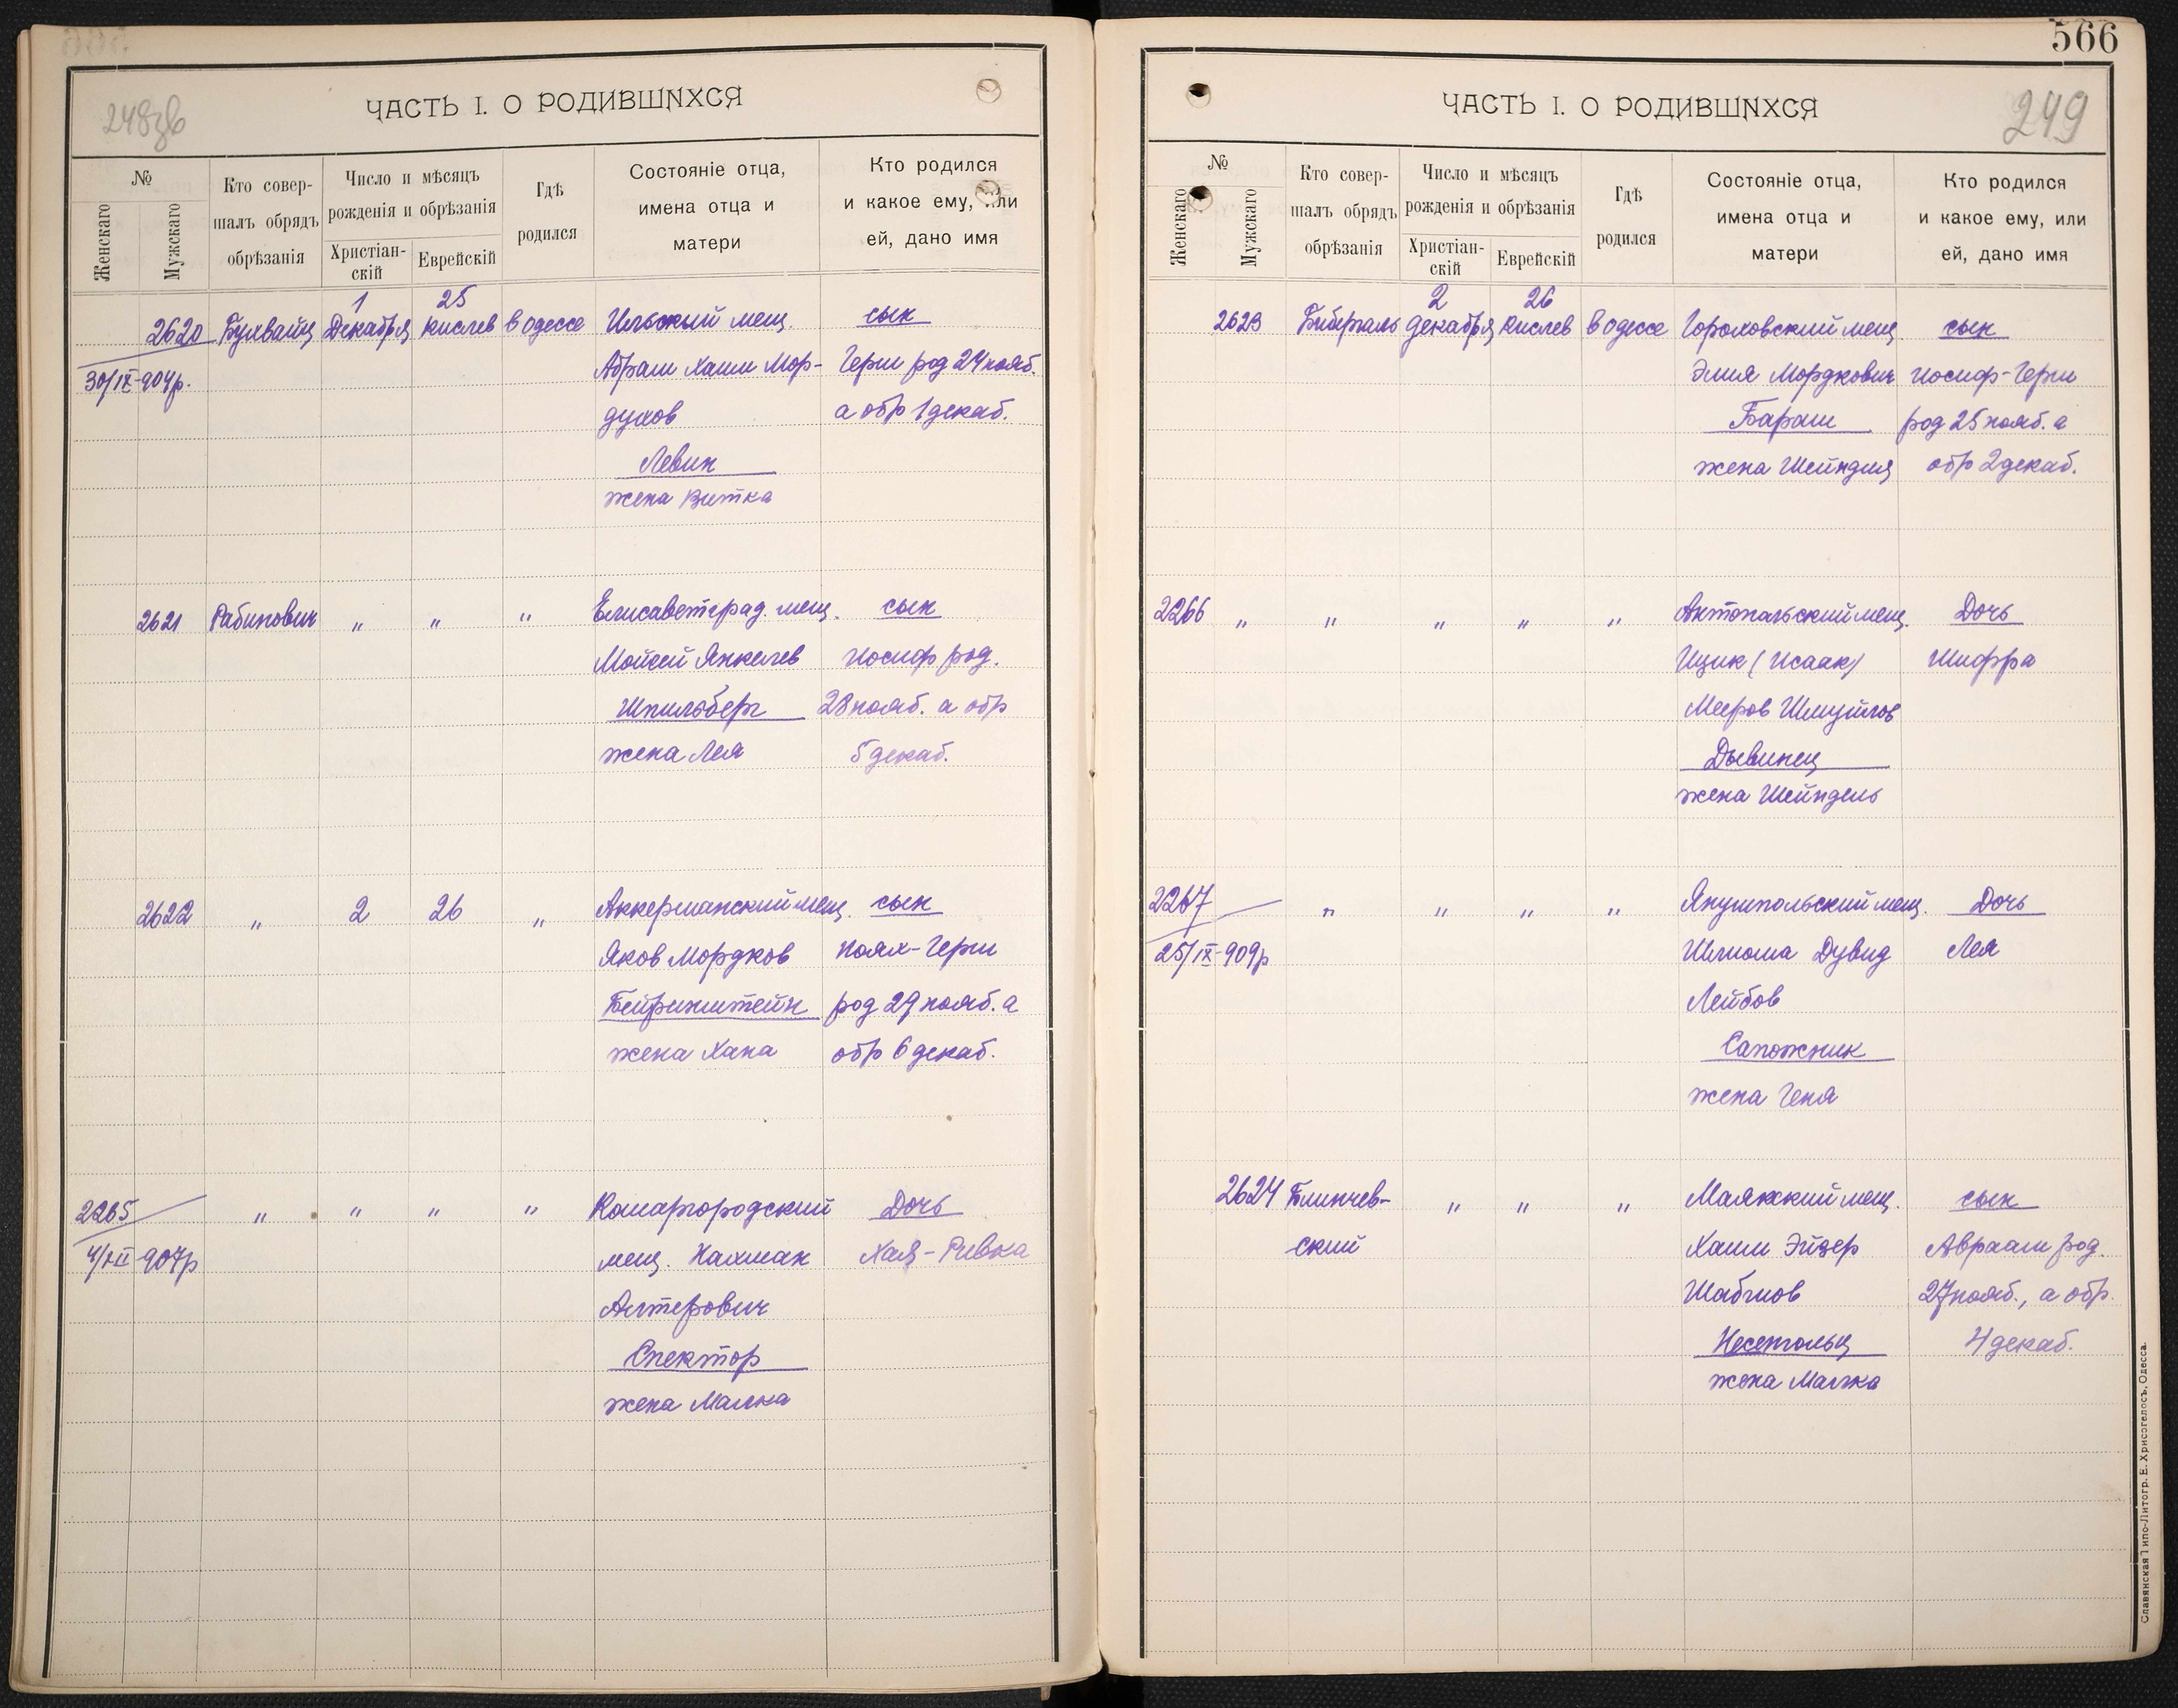 248зв
ЧАСТЬ I. О РОДИВШИХСЯ
№
Женскаго
Мужскаго
Кто совер-
шалъ обрядъ
обрѣзанія
Число и мѣсяцъ
рожденія и обрѣзанія
Христіан-
скій
Еврейскій
Гдѣ
родился
Состояніе отца,
имена отца и
матери
Кто родился
и какое ему, или
ей, дано имя
1 25
2620 Бухвайц Декабря Кислев в Одессе Ильский мещ. сын
30/IX-904р. Абрам Хаим Мор- Герш род 24 нояб.
духов а обр 1 декаб.
Левин
жена Витка
2621 Рабинович " " " Елисаветград. мещ. сын
Мойсей Янкелев Иосиф род.
Шпильберг 28 нояб. а обр
жена Лея 5 декаб.
2622 " 2 26 " Аккерманский мещ. сын
Яков Мордков Ноях-Герш
Бейринштейн род 29 нояб. а
жена Хана обр 6 декаб.
2265 " " " " Комаргородский Дочь
4/XII 907р мещ. Нахман Хая-Ривка
Алтерович
Спектор
жена Малка
566
249
ЧАСТЬ I. О РОДИВШИХСЯ
№
Женскаго
Мужскаго
Кто совер-
шалъ обрядъ
обрѣзанія
Число и мѣсяцъ
рожденія и обрѣзанія
Христіан-
скій
Еврейскій
Гдѣ
родился
Состояніе отца,
имена отца и
матери
Кто родился
и какое ему, или
ей, дано имя
2 26
2623 Бибергаль Декабря Кислев в Одессе Гороховский мещ. сын
Элия Мордкович Иосиф-Герш
Бараш род 25 нояб. а
жена Шейндля обр 2 декаб.
2266 " " " " " Антопальский мещ. Дочь
Ицик (Исаак) Шифра
Мееров Шмуйлов
Дывинец
жена Шейндель
2267 " " " " Янушпольский мещ. Дочь
25/IX-909р Шлиома Дувид Лея
Лейбов
Сапожник
жена Геня
2624 Блинчев- " " " Маякский мещ. сын
ский Хаим Эйзер Авраам род.
Шабшов 27 нояб., а обр.
Несенгольц 4 декаб.
жена Малка
Славянская Типо-Литогр. Е. Хрисогелосъ, Одесса.